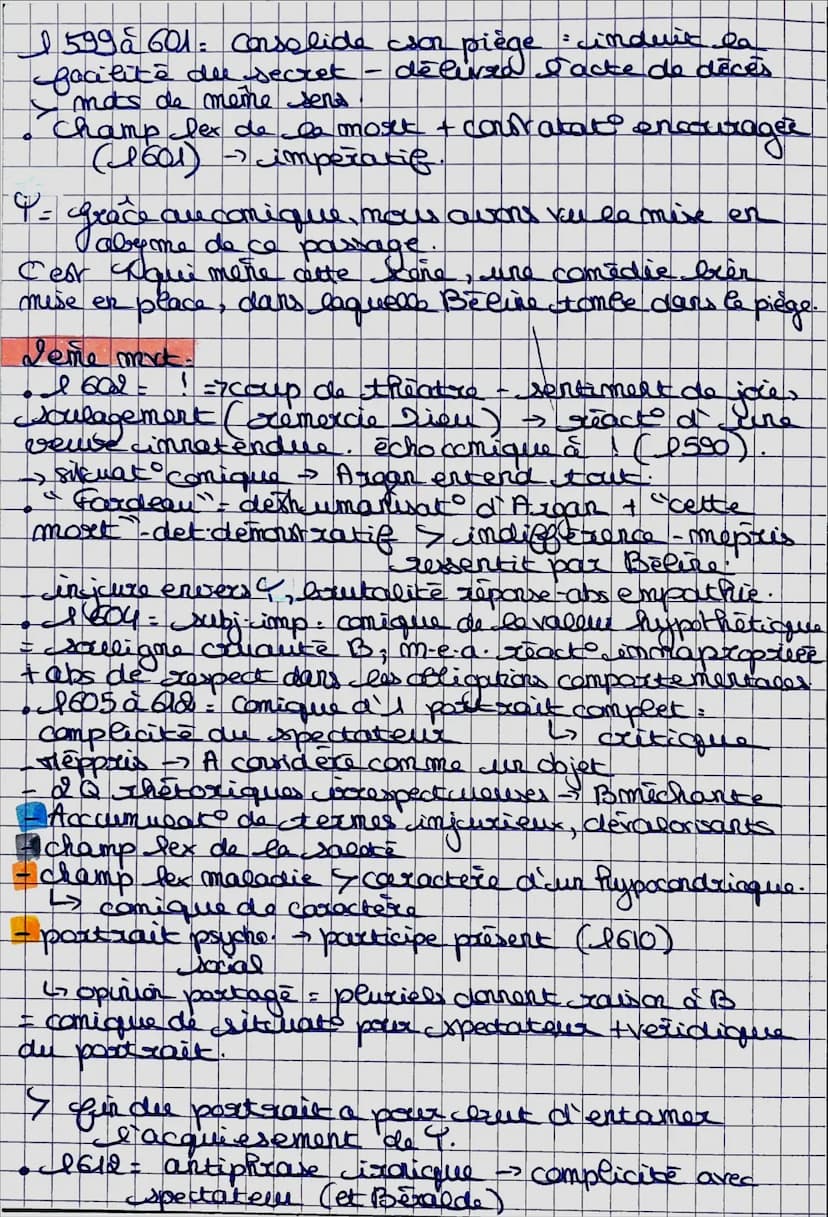 l 599 à 601 = Consolide son piège : induit la
facilité du secret - délivrer l'acte de décès
↳ mots de même sens.
• Champ lex de la mort + constatat° encouragée
(l601) → impératif.
Ψ = Grâce au comique, nous avons vu la mise en
abyme de ce passage.
C'est Ψ qui mène cette scène, une comédie bien
mise en place, dans laquelle Béline tombe dans le piège.
2ème mvt :
• l 602 = ! => coup de théâtre - sentiment de joie,
soulagement (remercie Dieu) → réact° d'une
veuve innatendue. écho comique à ! (l590).
→ situat° comique → Argan entend tout.
• "Fardeau" = deshumanisat° d'Argan + "cette
mort" - det. démonstratif ↳ indifférence - mépris
ressentit par Béline.
- injure envers Ψ, brutalité réponse - abs empathie.
• l 604 = subj-imp. comique de la valeur hypothétique
= souligne cruauté B, m.e.a. réact° innapropriée
+ abs de respect dans les obligations comportementales
• l605 à 612 = Comique d'1 portrait complet :
complicité du spectateur ↳ critique
- Méppris → A considère comme un objet
- 2 Q rhétoriques irrespectueuses → B méchante
- Accumulat° de termes injurieux, dévalorisants
- champ lex de la saleté
- champ lex maladie ↳ caractère d'un hypocondriaque.
↳ comique de caractère
- portrait psycho. → participe présent (l610)
social
↳ opinion partagé = pluriels donnent raison à B
= comique de situat° pour spectateur + véridique
du portrait.
↳ fin du portrait a pour but d'entamer
l'acquiesement de Ψ.
• l612 = antiphrase ironique → complicité avec
spectateur (et Béralde)